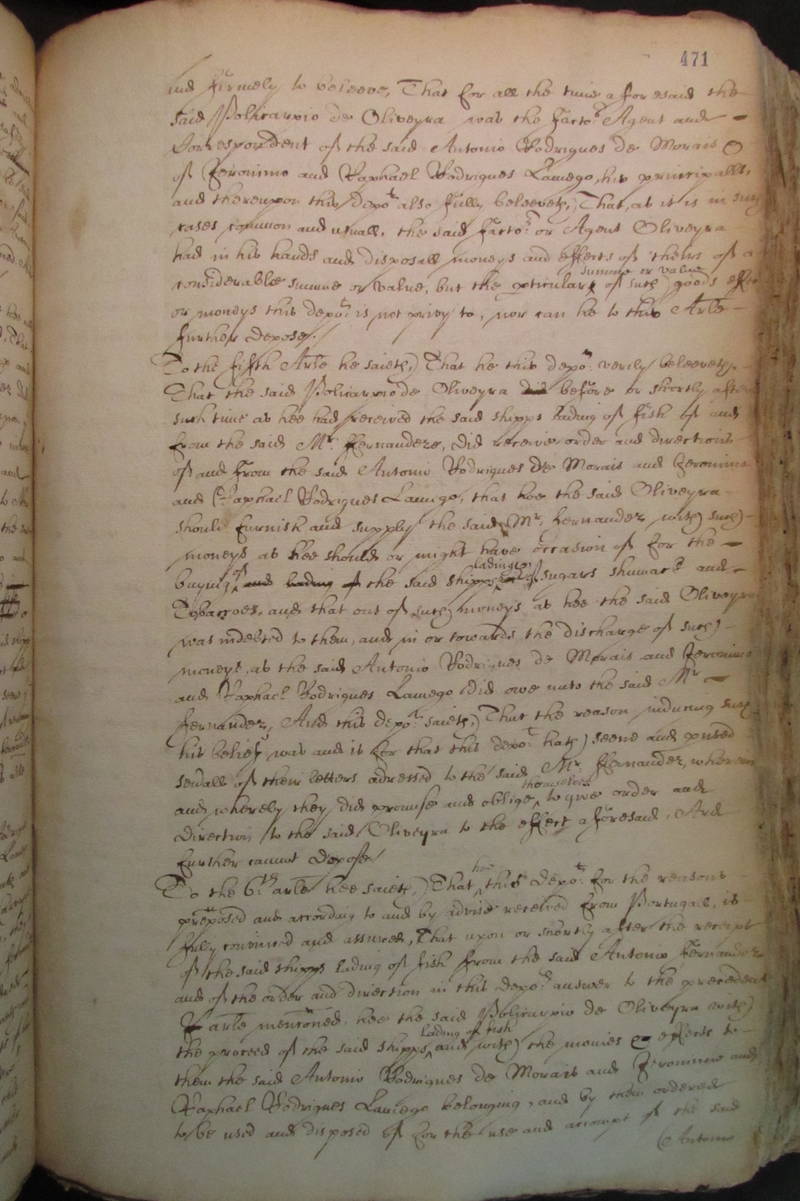 471
and firmely to beleeve, That for all the time aforesaid the
said Policarpio de Oliveyra was the Facto:r Agent and
Correspondent of the said Antonio Rodrigues de Morais
of Jeronimo and Raphael Rodrigues Lamego, his principalls,
and thereupon this depo:t also fully beleeveth, That, as it is in such
cases common and usuall, the said Facto:r or Agent Oliveyra
had in his hands and disposall moneys and effects of theirs of a
considerable summe or value, but the perticular summe or value of such goods effects
or moneys this depo:t is not privy to, nor can he to this Arle
further depose./
To the fifth Arle he saieth, That he this depo:t verily beleeveth,
That the said Policarpio de Oliveyra before or shortly after
such time as hee had received the said shipps lading of fish of and
from the said M:r Fernandez, did receive order and directions
of and from the said Antonio Rodrigues de Morais and Jeronimo
and Raphael Rodrigues Lamego, that hee the said Oliveyra
should furnish and supply the said M:r Fernandez with such
moneys as hee should or might have occasion of for the
buying of and lading of the said shipps lading of sugars shumack and
Tobaccoes, and that out of such moneys as hee the said Oliveyra
was indebted to them, and in or towards the discharge of such
moneys, as the said Antonio Rodrigues de Morais and Jeronimo
and Raphael Rodrigues Lamego did owe unto the said M:r
Fernandez, And this depo:t saieth, That the reason inducing such
his beliefe was and is for that this depo:t hath seene and perused
severall of their letters adressed to the said M:r Fernandez, wherein
and whereby they did promise and oblige themselves to give order and
direction to the said Oliveyra to the effect aforesaid, And
further cannot depose/
To the 6:th arle hee saieth, That hee this depo:t for the reasons
preposed and according to and by advise received from Portugall, is
fully convinced and assured, That upon or shortly after the receipt
of the said shipps lading of fish from the said Antonio Fernandez
and of the order and direction in this depo:ts answer to the precedent
arle mentioned hee the said Policarpio de Oliveyra with
the proceed of the said shipps lading of fish and with the monies effects to
them the said Antonio Rodrigues de Morais and Jeronimo and
Raphael Rodrigues Lamego belonging, and by them ordered
to be used and disposed of for the use and account of the said
Antonio